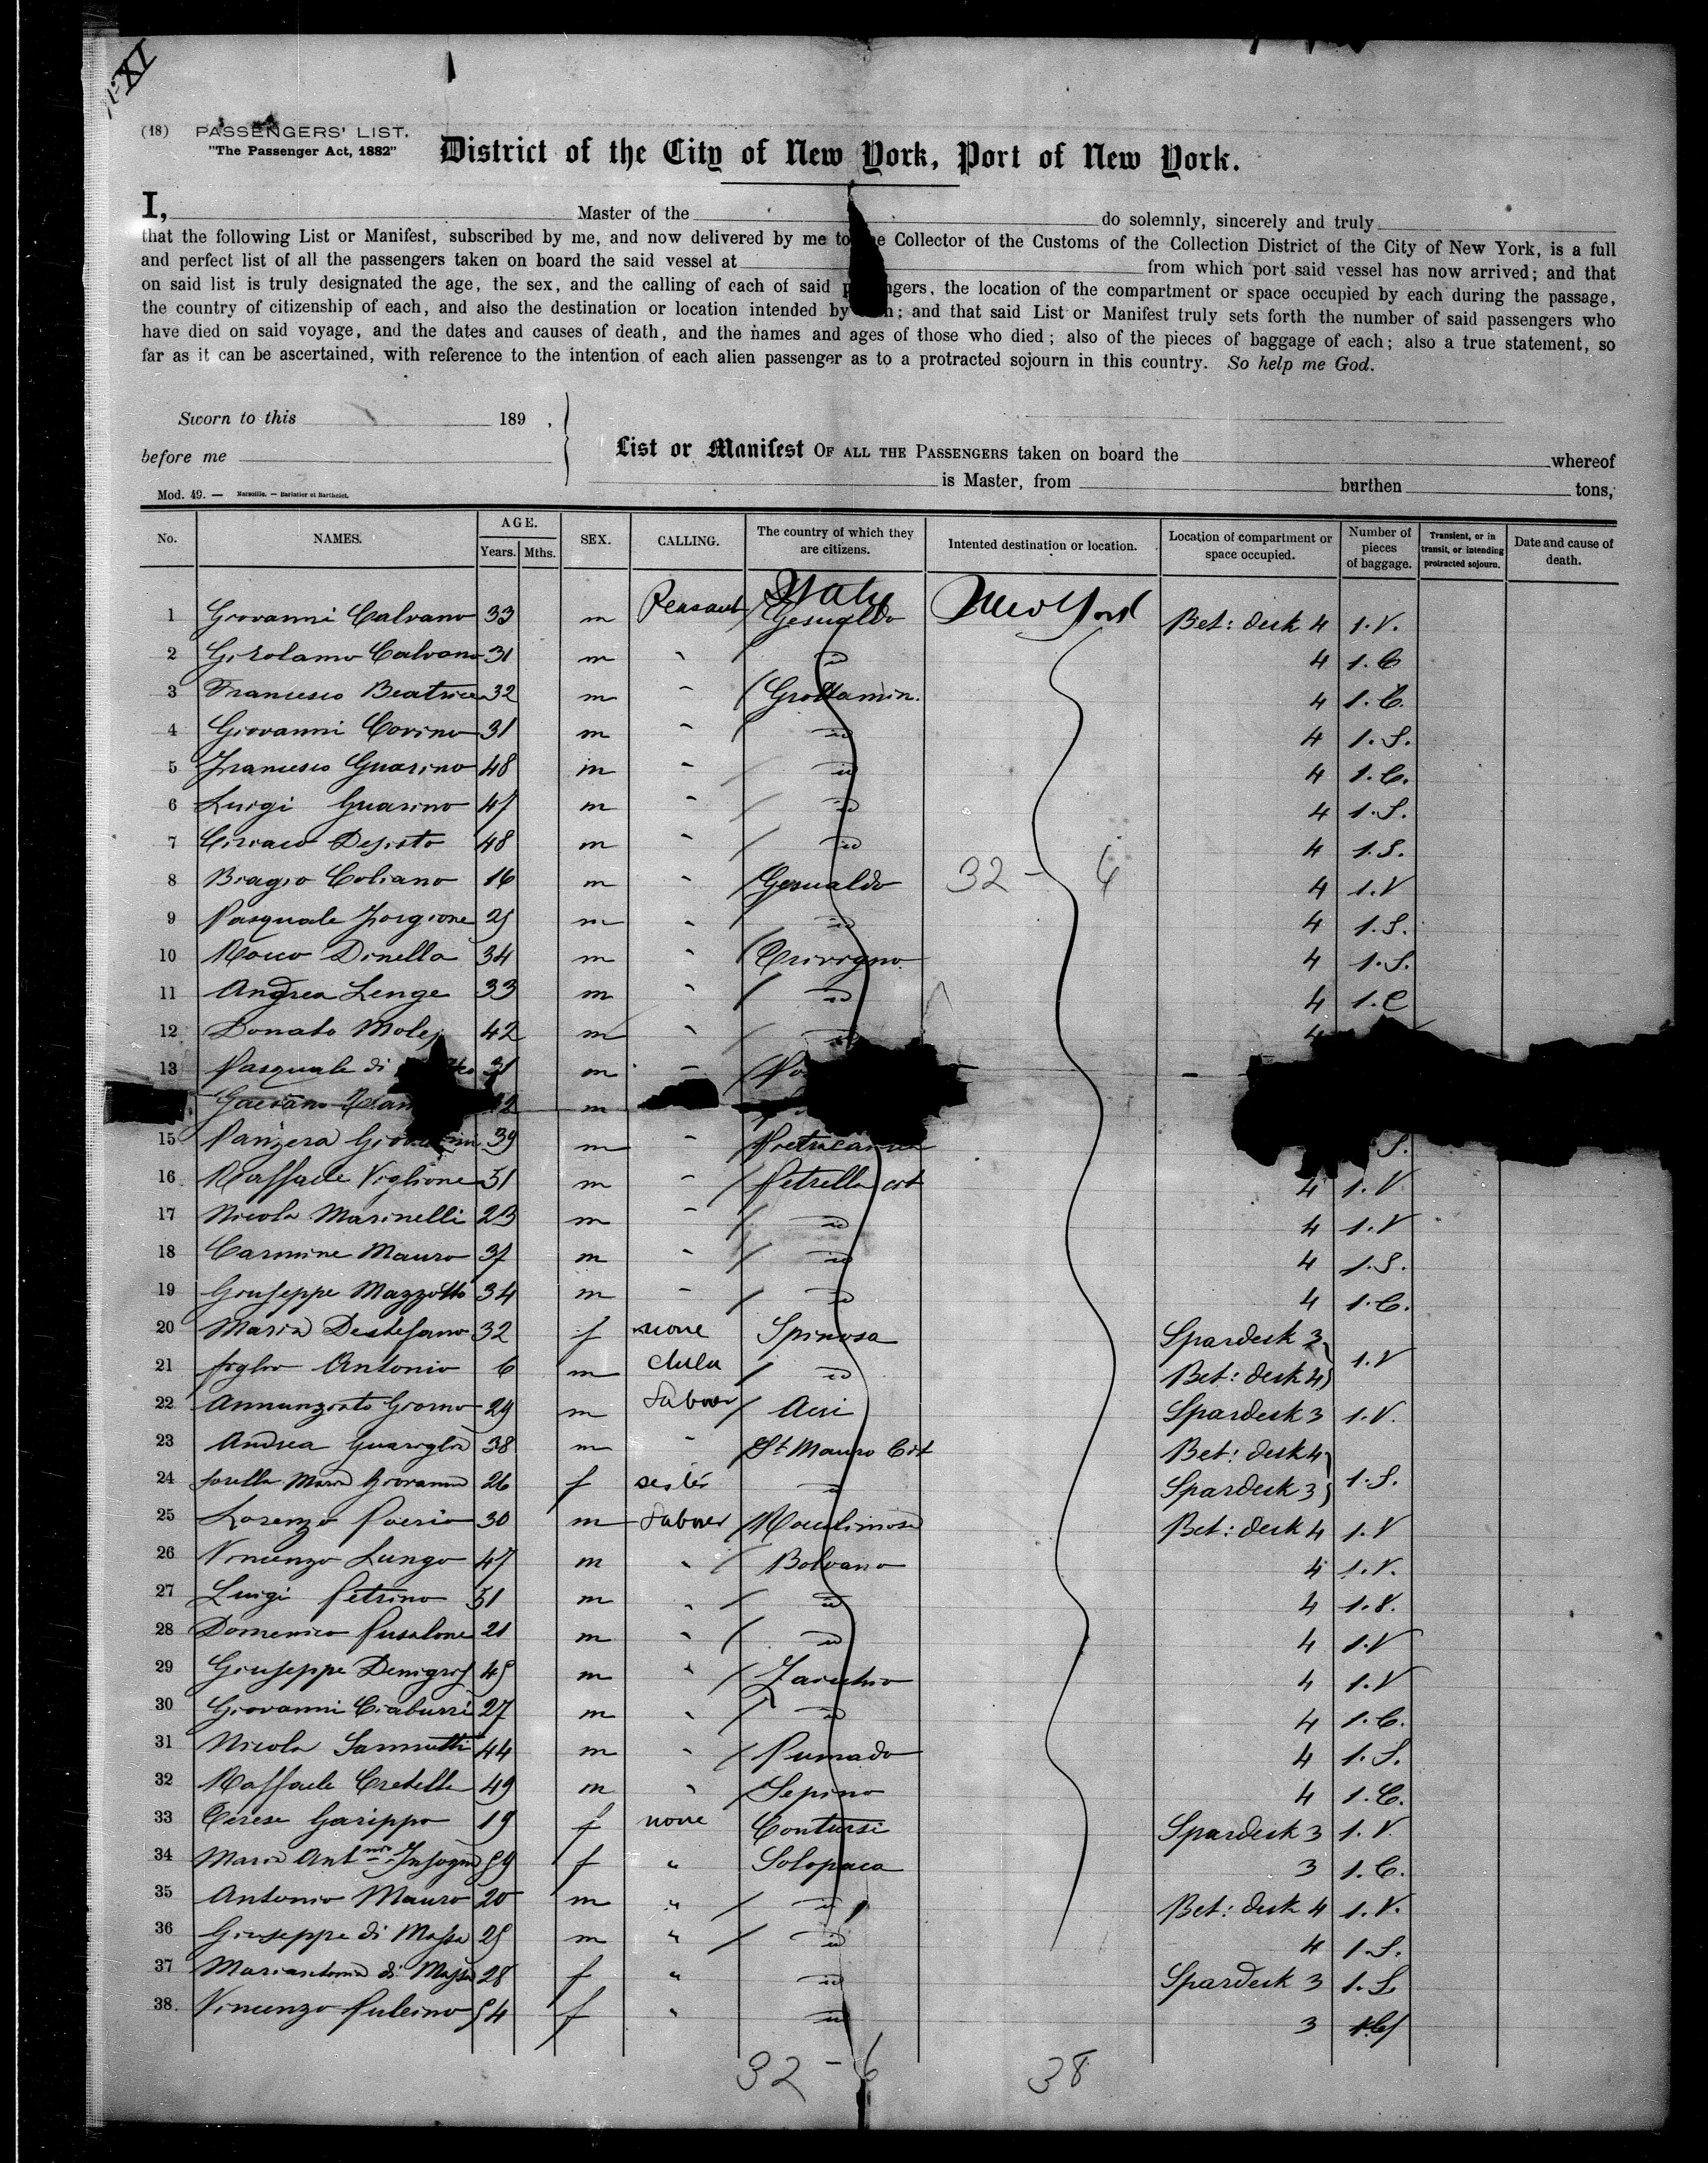 XI
(18) PASSENGERS' LIST.
"The Passenger Act, 1882"
District of the City of New York, Port of New York.
I, Master of the do solemnly, sincerely and truly
that the following List or Manifest, subscribed by me, and now delivered by me to Collector of the Customs of the Collection District of the City of New York, is a full
and perfect list of all the passengers taken on board the said vessel at from which port said vessel has now arrived; and that
on said list is truly designated the age, the sex, and the calling of each of said the location of the compartment or space occupied by each during the passage,
the country of citizenship of each, and also the destination or location intended by ; and that said List or Manifest truly sets forth the number of said passengers who
have died on said voyage, and the dates and causes of death, and the names and ages of those who died; also of the pieces of baggage of each; also a true statement, so
far as it can be ascertained, with reference to the intention of each alien passenger as to a protracted sojourn in this country. So help me God.
Sworn to this 189 ,
before me
List or Manifest OF ALL THE PASSENGERS taken on board the whereof
is Master, from burthen tons,
Mod. 49. — Marseille. — Barlatier et Barthelet.
No. NAMES. AGE. Years. Mths. SEX. CALLING. The country of which they are citizens. Intented destination or location. Location of compartment or space occupied. Number of pieces of baggage. Transient, or in transit, or intending protracted sojourn. Date and cause of death.
Italy
1 Giovanni Calvano 33 m Peasant Gesualdo New York Bet: desk 4 1. V.
2 Girolamo Calvano 31 m " id 4 1. C
3 Francesco Beatrice 32 m " Grottamin. 4 1. C.
4 Giovanni Covino 31 m " id 4 1. S.
5 Francesco Guarino 48 m " id 4 1. C.
6 Luigi Guarino 47 m " id 4 1. S.
7 Ciriaco Desisto 48 m " id 4 1. S.
8 Biagio Coliano 16 m " Gesualdo 32 - 6 4 1. V
9 Pasquale Forgione 25 m " id 4 1. S.
10 Rocco Dinella 34 m " Trivigno 4 1. S.
11 Andrea Lenge 33 m " id 4 1. C
12 Donato 42 m " id 4
13 Pasquale di 31 m "
Gaetano m
15 Panzera 39 m " S.
16 Raffaele Viglione 51 m " Petrella cit 4 1. V
17 Nicola Marinelli 23 m " id 4 1. V
18 Carmine Mauro 37 m " id 4 1. S.
19 Giuseppe Mazzotto 34 m " id 4 1. C.
20 Maria Destefano 32 f none Spinosa Spardesk 3
21 figlio Antonio 6 m child id Bet: desk 4 1. V
22 Annunziato Giorno 29 m Labour Acri Spardesk 3 1. V.
23 Andrea Guariglia 38 m " St Mauro Cit Bet: desk 4
24 sorella Maria Giovanna 26 f sister id Spardesk 3 1. S.
25 Lorenzo Poerio 30 m Labour Bet: desk 4 1. V
26 Vincenzo Lungo 47 m " Bolvano 4 1. V.
27 Luigi Petrino 51 m " id 4 1. S.
28 Domenico Fusalone 21 m " id 4 1. V
29 Giuseppe 45 m " 4 1. V
30 Giovanni Ciaburri 27 m " id 4 1. C.
31 Nicola Sannutti 44 m " 4 1. S.
32 Raffaele Cretella 49 m " Sepino 4 1. C.
33 Terese Garippo 19 f none Contursi Spardesk 3 1. V.
34 Maria 59 f " Solopaca 3 1. C.
35 Antonio Mauro 20 m " id Bet: desk 4 1. V.
36 Giuseppe di Massa 25 m " id 4 1. S.
37 Mariantonia di Massa 28 f " id Spardesk 3 1. S.
38 Vincenzo Pulcino 54 f " id 3
32 - 6 38